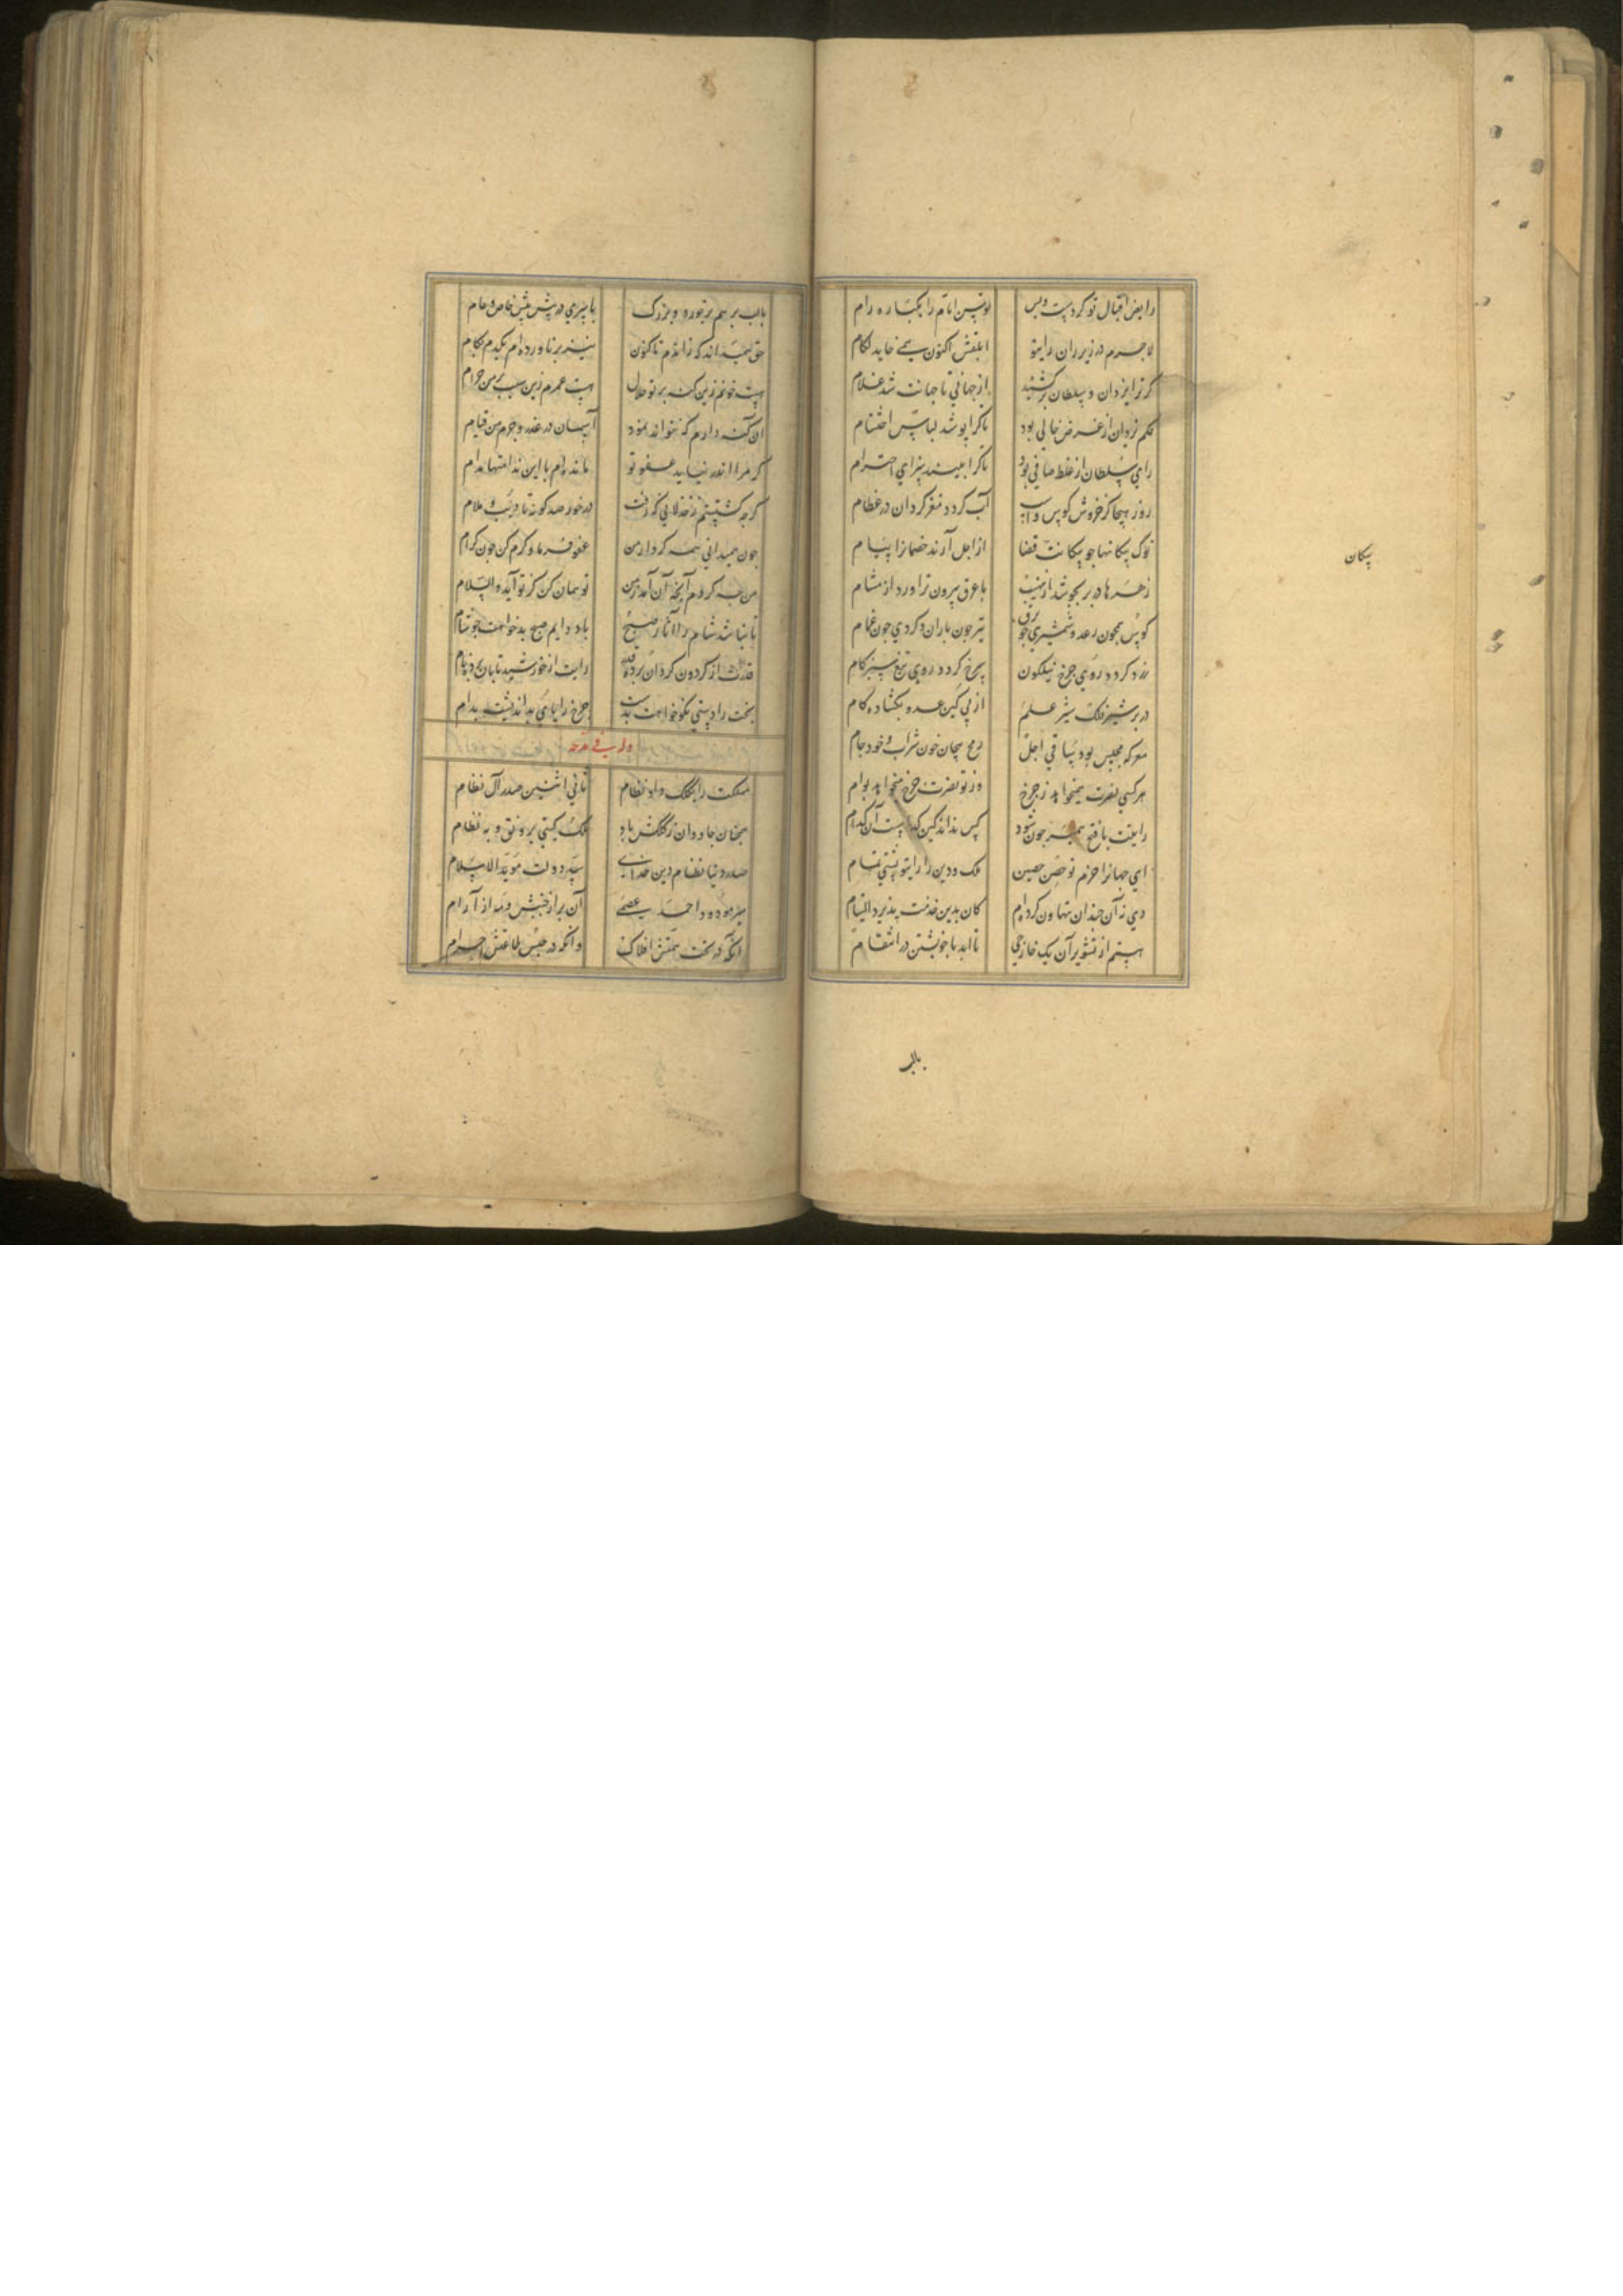 رایض اقبال تو کردست و بس توسن ایام را یکباره رام
لاجرم در زیر ران رای تو ابلقش اکنون همی خاید لکام
کر ترا یزدان و سلطان برکشید از جهانی تا جهانت شد غلام
حکم یزدان از غرض خالی بود تا کرا پوشد لباس احتشام
رای سلطان از غلط صافی بود تا کرا بیند سزای احترام
روز هیجا کز خروش کوس و اسب آب کردد مغز کردان در عظام
نوک پیکانها چو پیکانت قضا از اجل آرند خصمانرا پیام
پیکان
زهرها در بر بجوشد از نهیب با عرق بیرون تراود از مشام
کوس همچون رعد و شمشیری چو برق تیر چون باران و کردی چون غمام
زرد کردد روی چرخ نیلکون سرخ کردد روی تیغ سبز کام
در بر شیر فلک شیر علم از پی کین عدو بکشاده کام
معرکه مجلس بود ساقی اجل رمح پیچان خون شراب و خود جام
هر کسی نصرت همیخواهد ز چرخ وز تو نصرت چرخ میخواهد بوام
رایتت با فتح همبر چون شود کس نداند کین کدامست آن کدام
ای جهانرا حزم تو حصن حصین ملک و دین را رای تو پشتی تمام
دی ز آن چندان تهاون کرده‌ام کان بدین خدمت پذیرد التیام
هستم از تشویر آن یک خارجی تا ابد با خویشتن در انتقام
بالب
بالب بر هم بر خورد و بزرک با سری در پیش پیش خاص و عام
حق همیداند که زاندم تا کنون نیز بر ناورده‌ام یکدم بکام
هست خونم زین کنه بر تو حلال هست عمرم زین سبب بر من حرام
آن کنه دارم که نتواند نمود آسمان در عذر و جرم من قیام
کر مرا اندر نیابد عفو تو مانده‌ام با این ندامتها مدام
کرچه کشتستم ز خذلانی که رفت در خور صد کونه تادیب و ملام
چون همیدانی همه کردار من عفو فرما و کرم کن چون کرام
من چه کردم آنچه آن آمد ز من تو همان کن کز تو آید والسلام
تا نباشد شام را آثار صبح باد دایم صبح بدخواهت چو شام
قدرت از کردون کردان برده قدر رایت از خورشید تابان برده نام
بخت را دستی نکوخواهت بدست چرخ را پای بد اندیشت بدام
وله فی مدحه
مملکت را بکلک داد نظام ثانی اثنین صدر آل نظام
همچنان جاودان ز کلکش باد ملک کیتی برونق و به نظام
صدر دنیا نظام دین خدای سید دولت مؤید الاسلام
میر مودود احمد عصمی آن بر از جنبش و مه از آرام
آنکه در تحت همتش افلاک وانکه در حبس طاعتش اجرام